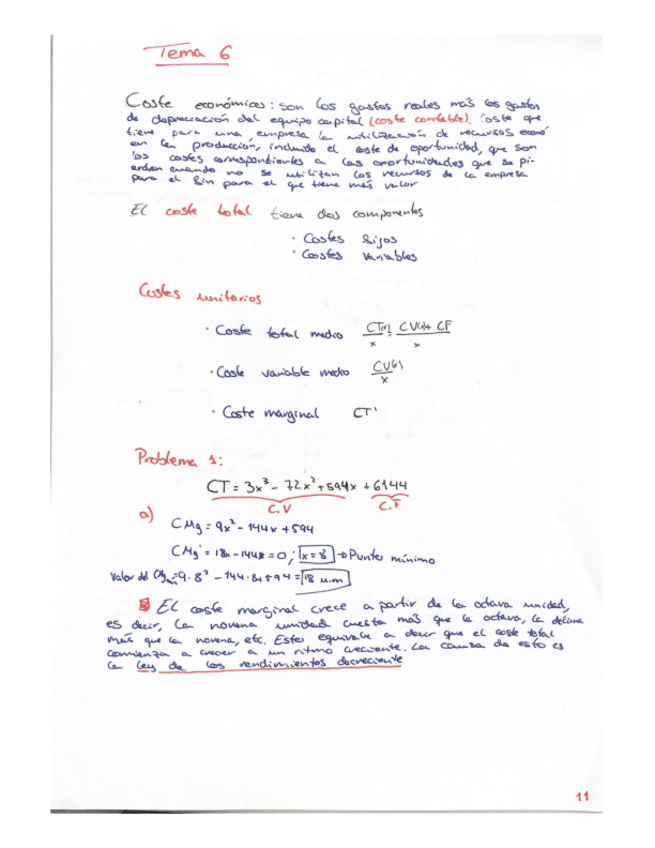 Tema 6
Coste económico: son los gastos reales más los gastos
de depreciación del equipo capital (coste contable). Coste que
tiene para una empresa la utilización de recursos econó
en la producción, incluido el coste de oportunidad, que son
los costes correspondientes a las oportunidades que se pi-
erden cuando no se utilizan los recursos de la empresa
para el fin para el que tiene más valor
El coste total tiene dos componentes
· Costes fijos
· Costes variables
Costes unitarios
· Coste total medio CT(x)/x = CV(x)+ CF/x
· Coste variable medio CV(x)/x
· Coste marginal CT'
Problema 1:
CT = 3x³ - 72x² + 594x + 6144
C.V C.F
a) CMg = 9x² - 144x + 594
CMg' = 18x - 144 = 0 ; x = 8 → Punto mínimo
Valor del CMg = 9·8² - 144·8+594 = 18 u.m
El coste marginal crece a partir de la octava unidad,
es decir, la novena unidad cuesta más que la octava, la décima
más que la novena, etc. Esto equivale a decir que el coste total
comienza a crecer a un ritmo creciente. La causa de esto es
la ley de los rendimientos decreciente
11